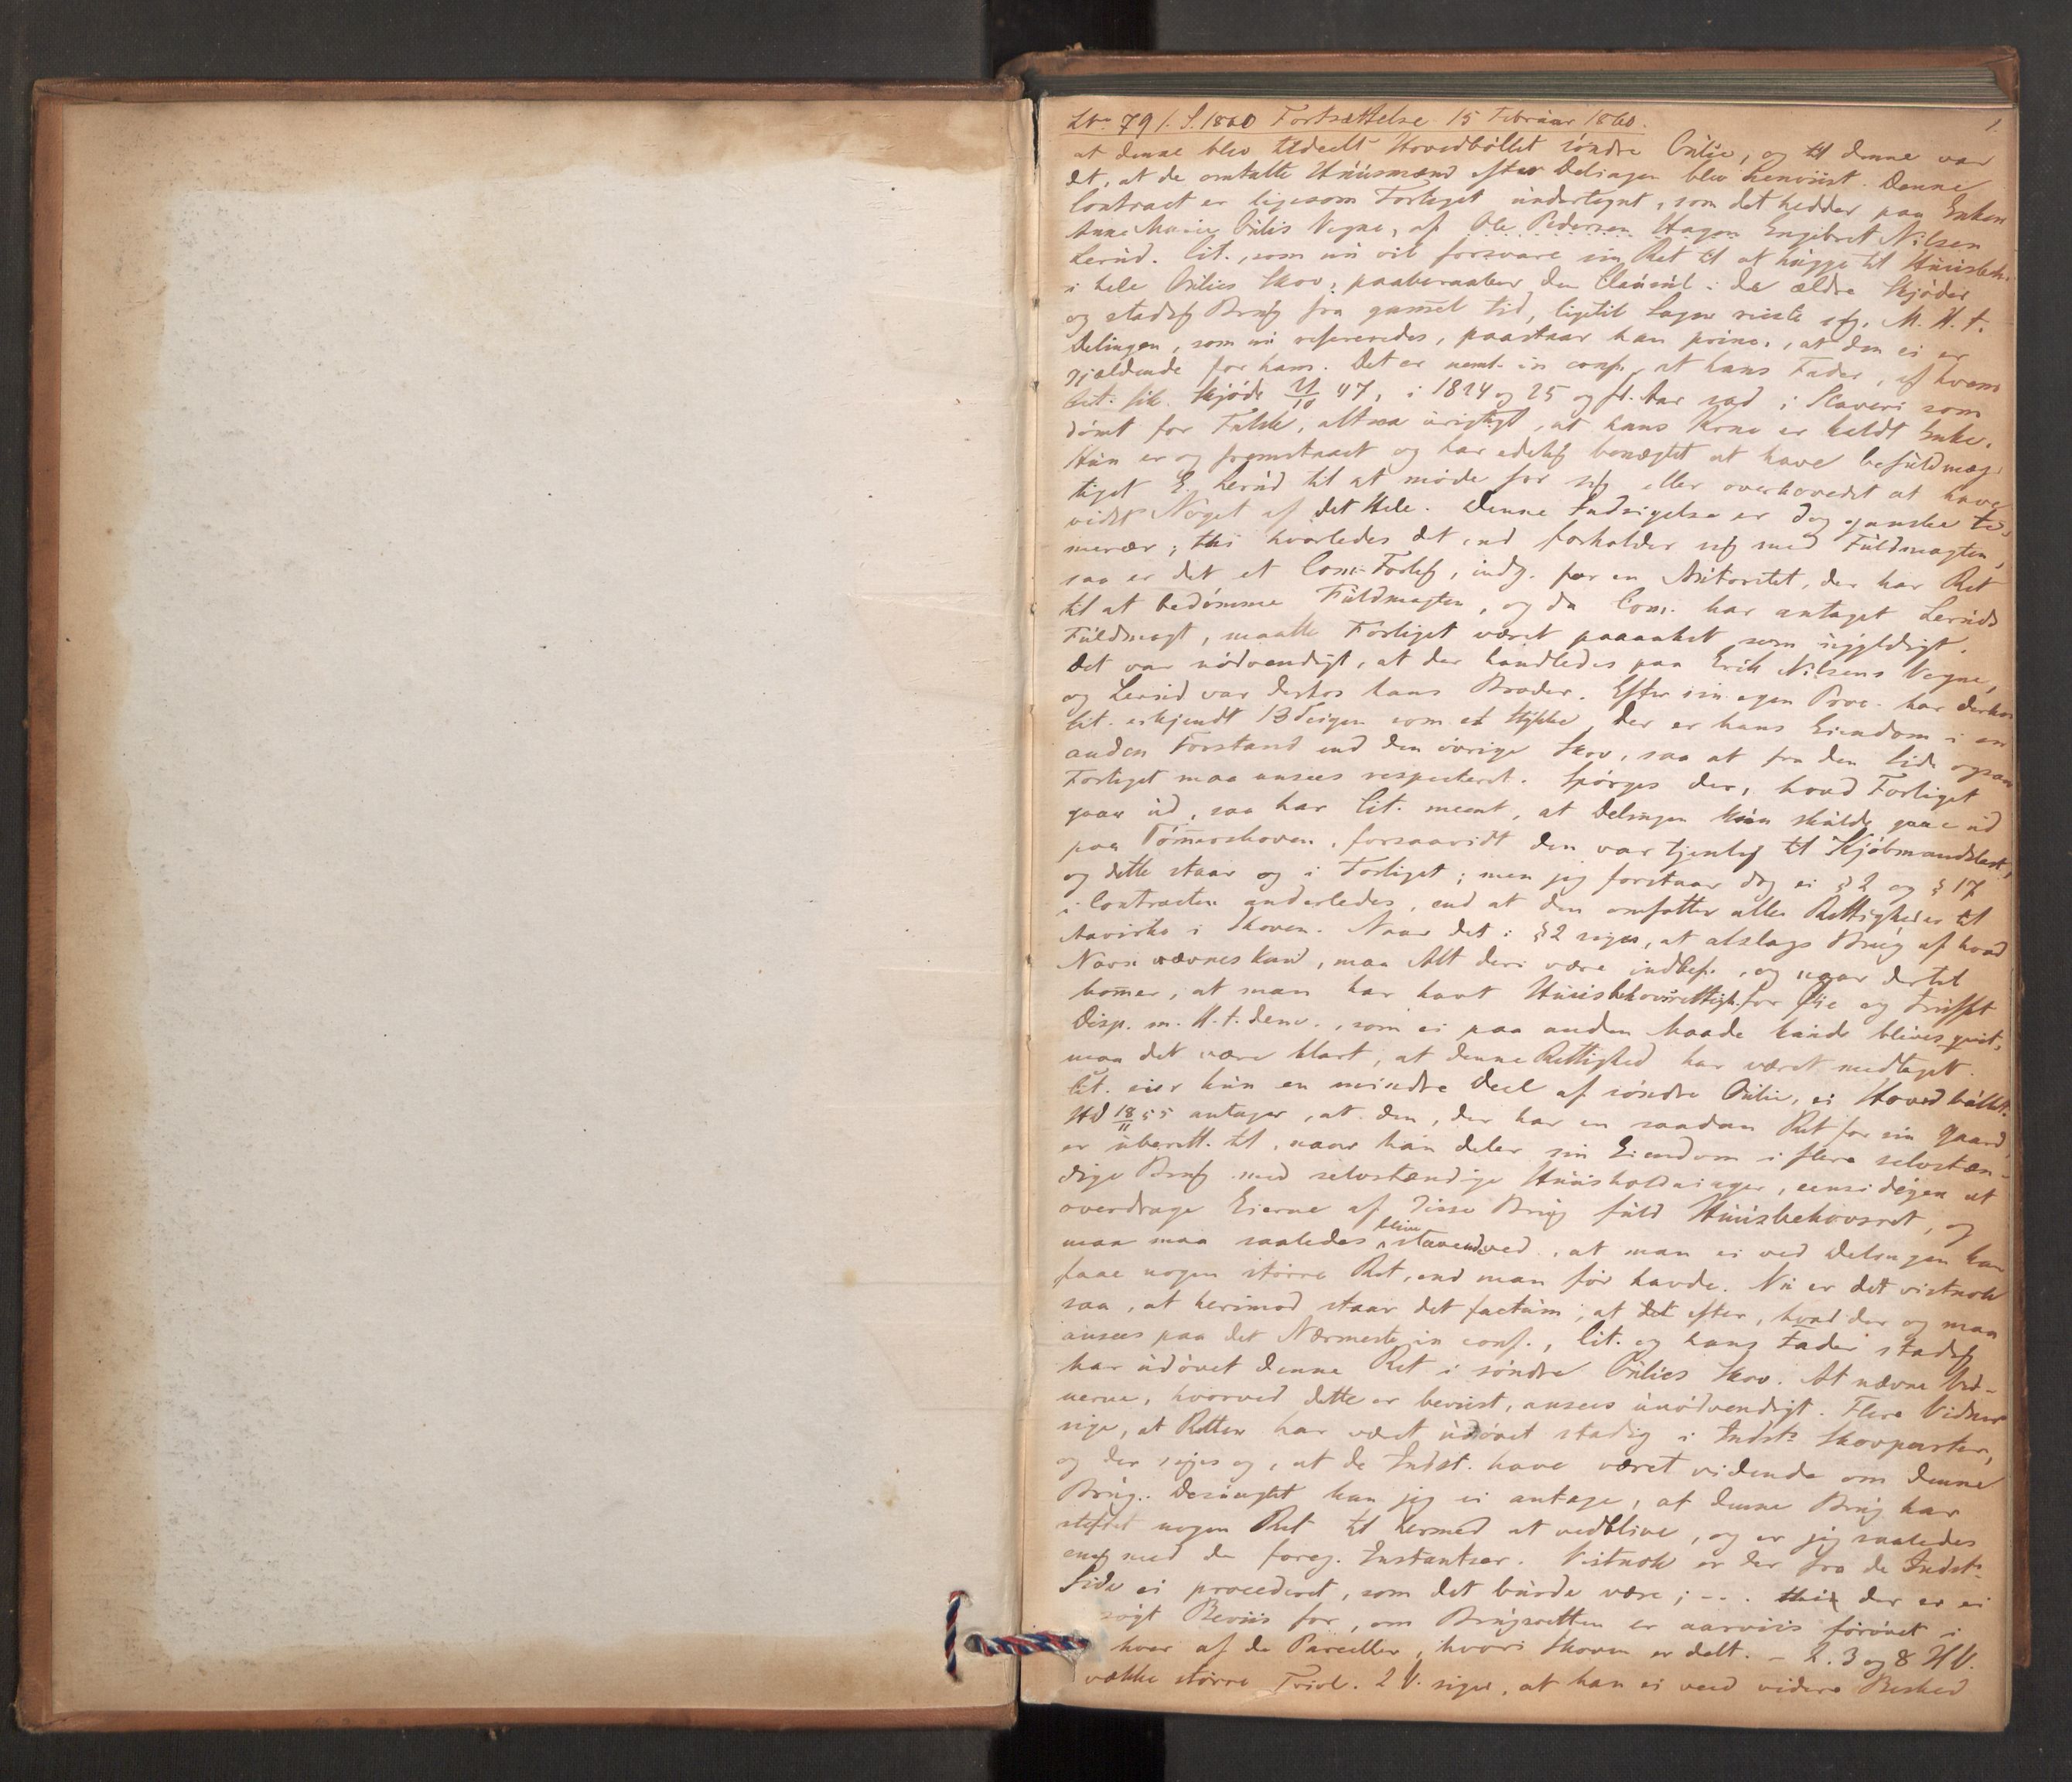 1.
LNo 79 1. S. 1860 Fortsættelse 15 Februar 1860.
at denne blev tildeelt Hovedbøllet søndre Óulie, og til denne var
det, at de omtalte Huusmænd efter Delingen blev henviist. Denne
Contract er ligesom Forliget undertegnt, som det hedder paa Enken
Anne Marie Óulies Vegne, af Ole Pedersen Hagen Engebret Nilsen
Lerud. Cit., som nu vil forsvare sin Ret til at hugge til Huusbeh.
i hele Óulies Skov, paaberaaber den Clausul i de ældre Skjøder
og stadig Brug fra gammel tid, ligetil Sagen reiste sig. M. H. t.
Delingen, som nu refereredes, paastaar han princ., at den ei er
gjældende for ham. Det er neml. in conf., at hans Fader, af hvem
Cit. fik Skjøde 21/10 47, i 1824 og 25 og fl. Aar sad i Slaveri som
dømt for Falsk, altsaa urigtigt, at hans Kone er kaldt Enke.
Hun er og fremstaaet og har edelig benægtet at have befuldmæg-
tiget E. Lerud til at møde for sig eller overhovedet at have
vidst Noget af det Hele. Denne Indsigelse er dog ganske te-
merær; thi hvorledes det end forholder sig med Fuldmagten,
saa er det et Com: Forlig, indg. for en Autoritet, der har Ret
til at bedømme Fuldmagten, og da Com. har antaget Leruds
Fuldmagt, maatte Forliget været paaanket som ugyldigt.
Det var nødvendigt, at der handledes paa Erik Nilsens Vegne,
og Lerud var derhos hans Broder. Efter sin egen Proc. har derhos
Cit. erkjendt 13 Teigen som et Stykke, der er hans Eiendom i en
anden Forstand end den øvrige Skov, saa at fra den Side ogsaa
Forliget maa ansees respecteret. Spørges der, hvad Forliget
gaar ud, saa har Cit. meent, at Delingen kun skulde gaae ud
paa Tømmerskoven, forsaavidt den var tjenlig til Kjøbmandslast,
og dette staar og i Forliget; men jeg forstaar dog ei § 2 og § 17
i Contracten anderledes, end at den omfatter alle Rettigheder til
Aavirke i Skoven. Naar det i § 2 siges, at alslags Brug af hvad
Navn nævnes kan, maa Alt deri være indbef., og naar dertil
kommer, at man har havt Huusbehovsrettigh. for Øie og truffet
Disp. m. H. t. denne, som ei paa anden Maade kunde blives qvit,
maa det være klart, at denne Rettighed har været medtaget.
Cit. eier kun en mindre Deel af søndre Óulie, ei Hovedbøllet.
HD 18/11 55 antager, at den, der har en saadan Ret for sin Gaard,
er uberett. til, naar han deler sin Eiendom i flere selvstæn-
dige Brug med selvstændige Huusholdninger, eensidigen at
overdrage Eierne af disse Brug fuld Huusbehovsret, og
man maa saaledes blive staaende ved, at man ei ved Delingen kan
faae nogen større Ret, end man før havde. Nu er det vistnok
saa, at herimod staar det factum, at det efter, hvad der og maa
ansees paa det Nærmeste in conf., Cit. og hans Fader stadig
har udøvet denne Ret i søndre Óulies Skov. At nævne Vid-
nerne, hvorved dette er beviist, ansees unødvendigt. Flere Vidner
sige, at Retten har været udøvet stadig i Indsts Skovparter,
og der siges og, at de Indst. have været vidende om denne
Brug. Desuagtet kan jeg ei antage, at denne Brug har
stiftet nogen Ret til hermed at vedblive, og er jeg saaledes
enig med de foreg. Instantser. Vistnok er der fra de Indsts
Side ei procederet, som det burde være; -.. thi der er ei
søgt Beviis for, om Brugsretten er aarviis forøvet i
hver af de Parceller, hvori Skoven er delt. - 2. 3 og 8 HV.
vække større Tvivl. 2 V. siger, at han ei veed videre Besked